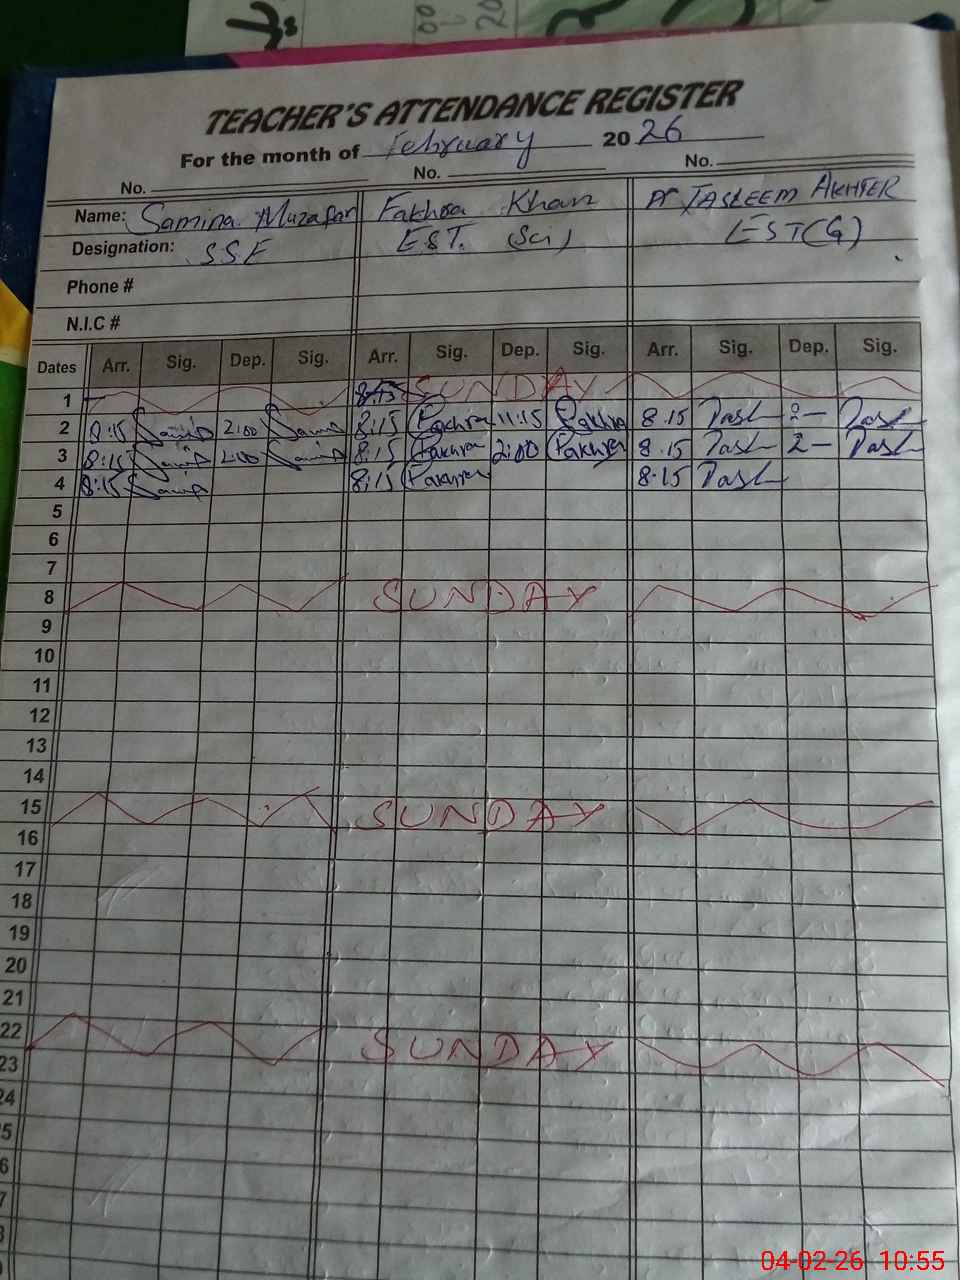 TEACHER'S ATTENDANCE REGISTER
For the month of February 2026
No. No. No.
Name: Samina Muzafar Fakhra Khan TASLEEM AKHTER
Designation: SSE EST. (Sci) EST(G)
Phone #
N.I.C #
Dates Arr. Sig. Dep. Sig. Arr. Sig. Dep. Sig. Arr. Sig. Dep. Sig.
1 8:15 SUNDAY
2 8:15 Samina 2:00 Samina 8:15 Fakhra 11:15 Fakhra 8.15 Tasl 2- Tasl
3 8:15 Samina 2:00 Samina 8:15 Fakhra 2:00 Fakhra 8.15 Tasl 2- Tasl
4 8:15 Samina 8:15 Fakhra 8.15 Tasl
5
6
7
8 SUNDAY
9
10
11
12
13
14
15 SUNDAY
16
17
18
19
20
21
22 SUNDAY
23
24
5
6
7
04-02-26 10:55